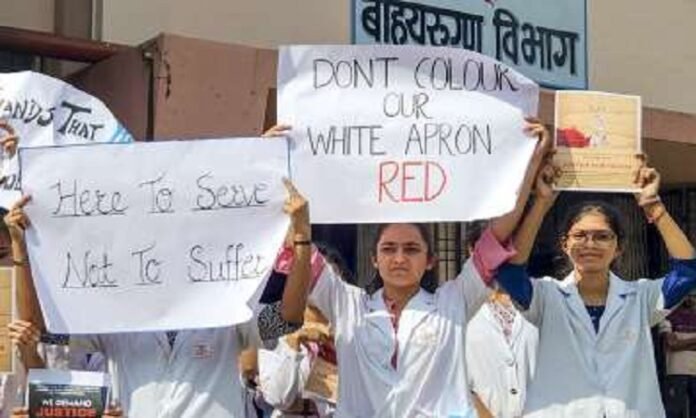 बाह्यरुग्ण विभाग
ANDS THAT
Here To Serve
Not To Suffer
DONT COLOUR
OUR
WHITE APRON
RED
WE DEMAND
JUSTICE